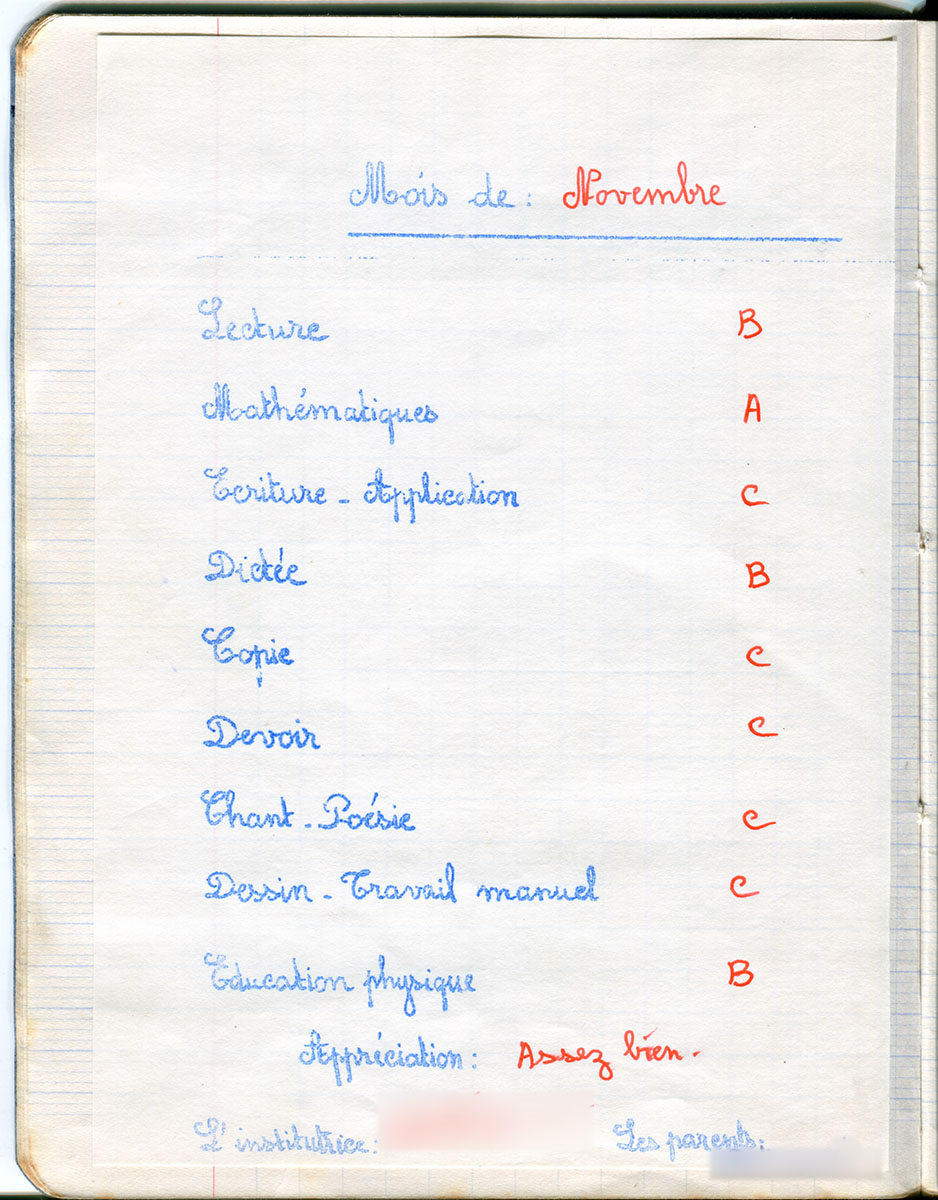 Mois de : Novembre
Lecture B
Mathématiques A
Ecriture - Application C
Dictée B
Copie C
Devoir C
Chant - Poésie C
Dessin - Travail manuel C
Education physique B
Appréciation : Assez bien.
L'institutrice : Les parents :